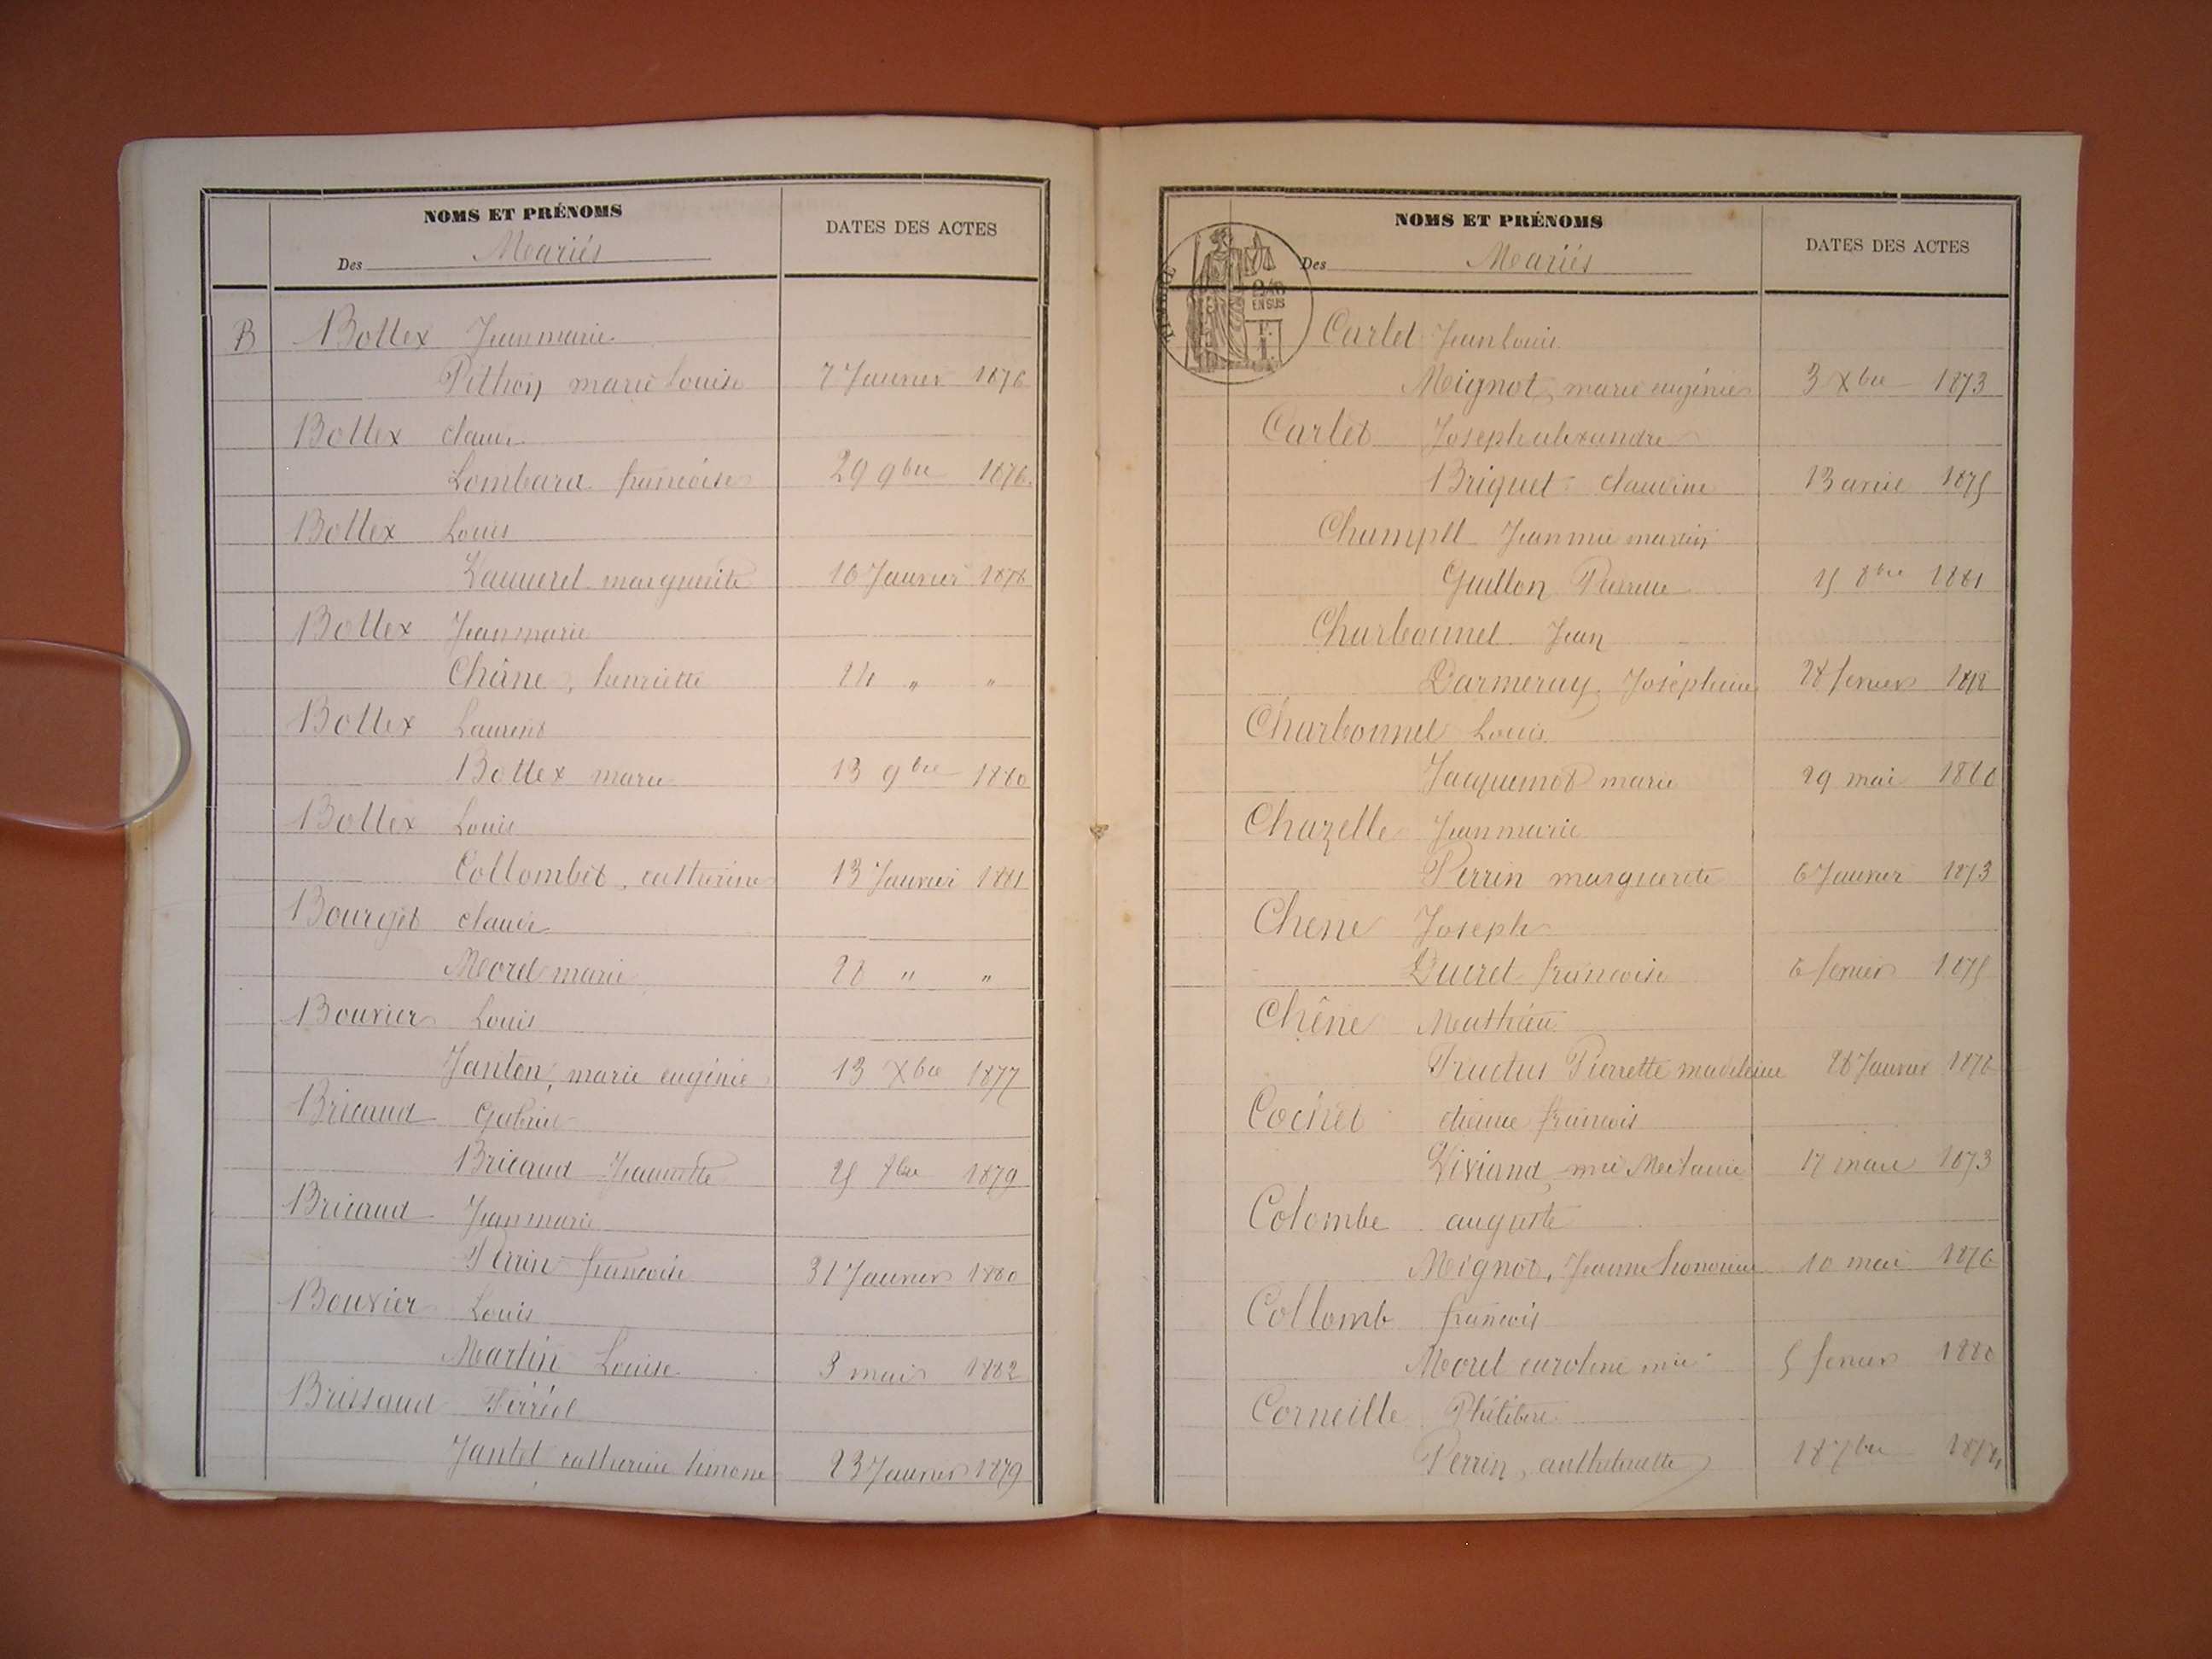 NOMS ET PRÉNOMS
DATES DES ACTES
Des Mariés
B Bottex Jean marie
Pithon marie Louise 7 Janvier 1876
Bottex claude
Lombard françoise 29 9bre 1876
Bottex Louis
marguerite 16 Janvier 1878
Bottex Jean marie
Chêne, henriette 24 " "
Bottex Laurent
Bottex marie 13 9bre 1880
Bottex Louis
Collombet, catherine 13 Janvier 1881
Bourget claude
Morel marie 22 " "
Bouvier Louis
Janton, marie eugénie 13 Xbre 1877
Bricaud Gabriel
Bricaud Jeannette 25 1879
Bricaud Jean marie
Perrin françoise 31 Janvier 1880
Bouvier Louis
Martin Louise 3 1882
Brissaud Ferréol
Jantet catherine simone 23 Janvier 1879
NOMS ET PRÉNOMS
DATES DES ACTES
Des Mariés
2/10
EN SUS
Carlet Jean Louis
Mignot, marie eugénie 3 Xbre 1873
Carlet Joseph alexandre
Briquet claudine 13 avril 1875
Jean mie martin
Guillon Pierrette 15 8bre 1881
Charbonnel Jean
Darmeray Joséphine 28 fevrier 1878
Charbonnel Louis
Jacquemot marie 29 mai 1880
Chazelle Jean marie
Perrin marguerite 6 Janvier 1873
Chene Joseph
Ducret françoise 6 fevrier 1875
Chêne Mathieu
Fructus Pierrette madeleine 26 Janvier 1878
Cochet etienne françois
Viviand, mie Melanie 17 mars 1873
Colombe auguste
Mignot, Jeanne honorine 10 mai 1876
Collomb françois
Morel caroline mie 5 fevrier 1880
Corneille Philibert
Perrin, anthelmette 18 7bre 1874